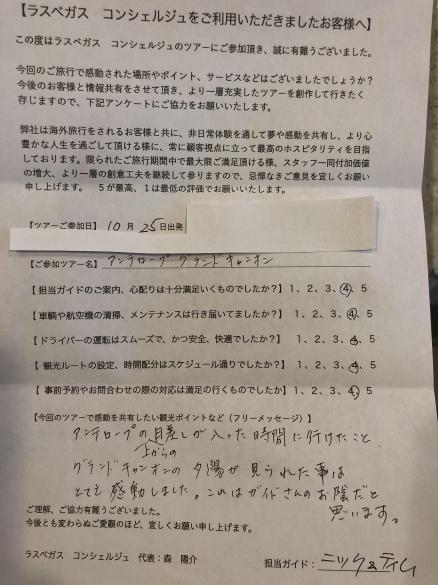 【ラスベガス　コンシェルジュをご利用いただきましたお客様へ】
この度はラスベガス　コンシェルジュのツアーにご参加頂き、誠に有難うございました。
今回のご旅行で感動された場所やポイント、サービスなどはございましたでしょうか？
今後のお客様と情報共有をさせて頂き、より一層充実したツアーを創作して行きたく
存じますので、下記アンケートにご協力をお願いいたします。
弊社は海外旅行をされるお客様と共に、非日常体験を通して夢や感動を共有し、より心
豊かな人生を過ごして頂ける様に、常に顧客視点に立って最高のホスピタリティを目指
しております。限られたご旅行期間中で最大限ご満足頂ける様、スタッフ一同付加価値
の増大、より一層の創意工夫を継続して参りますので、忌憚なきご意見を宜しくお願い
申し上げます。　5が最高、1は最低の評価でお願いいたします。
【ツアーご参加日】10月25日出発
【ご参加ツアー名】アンテロープグランドキャニオン
【担当ガイドのご案内、心配りは十分満足いくものでしたか？】1、2、3、4、5
【車輌や航空機の清掃、メンテナンスは行き届いてましたか？】1、2、3、4、5
【ドライバーの運転はスムーズで、かつ安全、快適でしたか？】1、2、3、4、5
【 観光ルートの設定、時間配分はスケジュール通りでしたか？】1、2、3、4、5
【 事前予約やお問合わせの際の対応は満足の行くものでしたか】1、2、3、4、5
【今回のツアーで感動を共有したい観光ポイントなど（フリーメッセージ）】
アンテロープの日差しが入った時間に行けたこと
上からの
グランドキャニオンの夕陽が見られた事は
とても感動しました。これはガイドさんのお陰だと
思います。
ご理解、ご協力有難うございました。
今後とも変わらぬご愛顧のほど、宜しくお願い申し上げます。
ラスベガス　コンシェルジュ　代表：森　陽介
担当ガイド：ニック&ティム